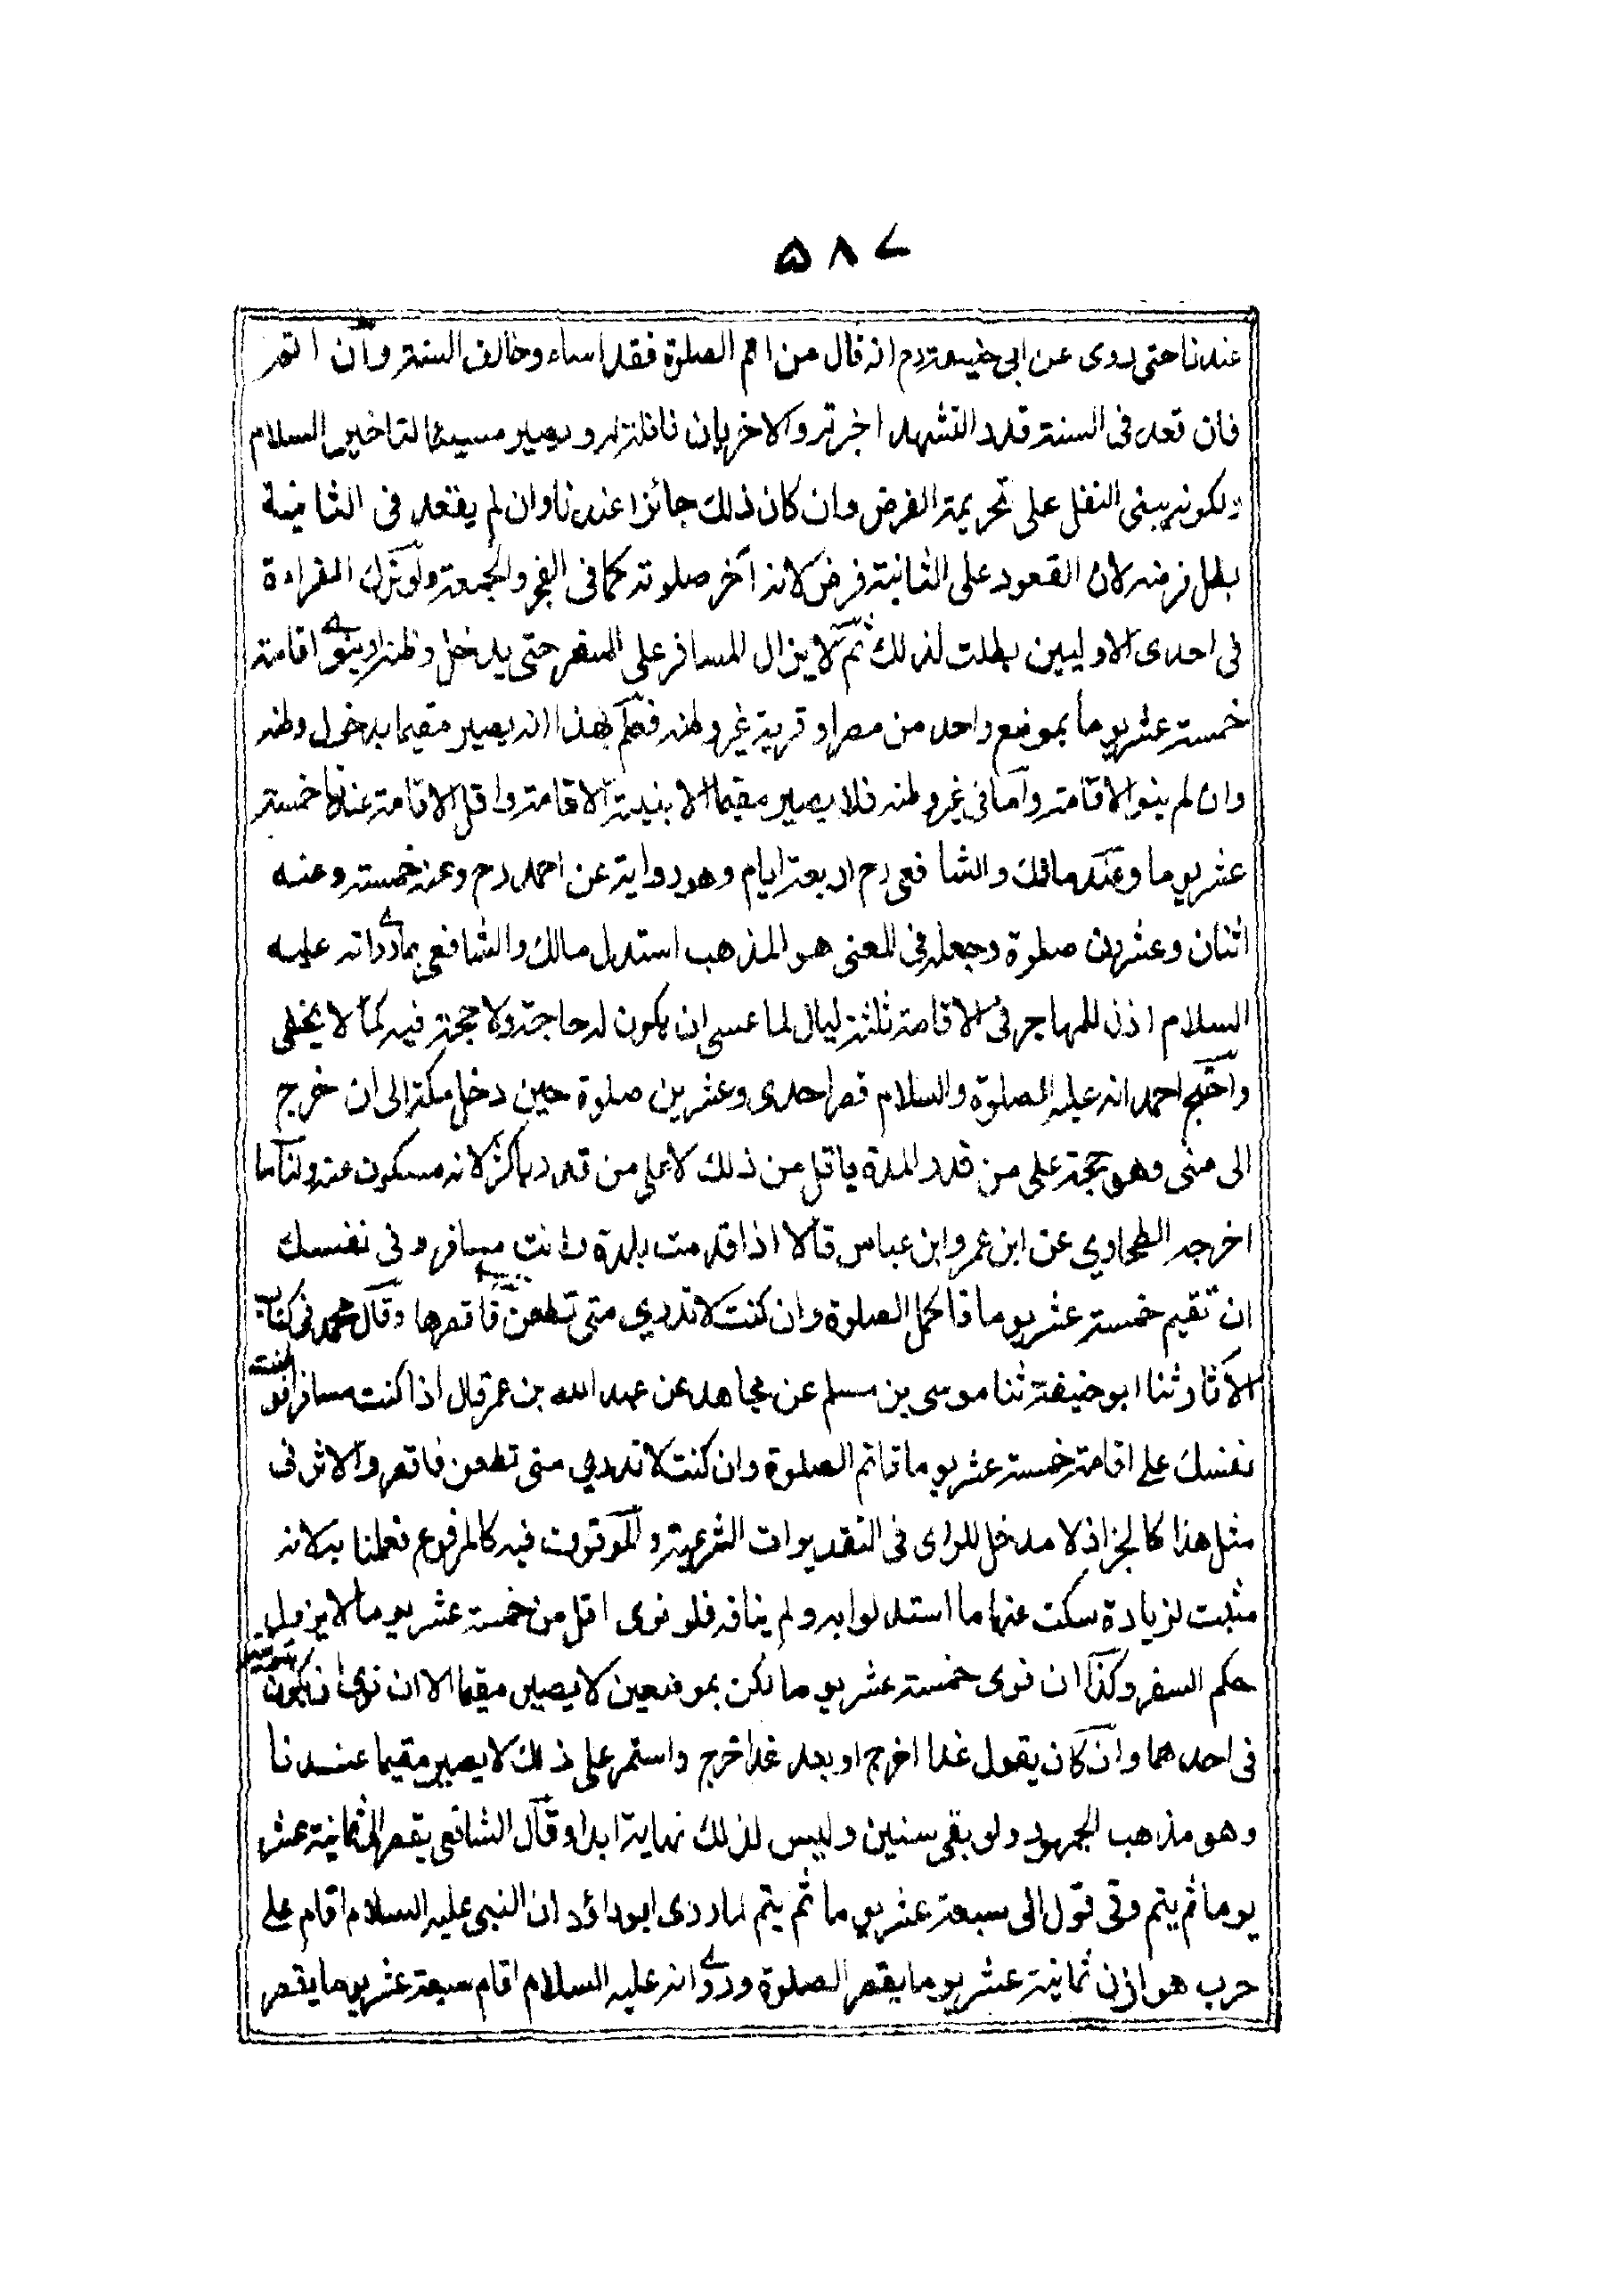 ۵۸۷
عندنا حتى روى عن ابى حنيفة رح انه قال من اتم الصلوة فقد اساء وخالف السنة وان اتم
فان قعد فى السنة قدر التشهد اجزته والاخريان نافلة له ويصير مسيئا لتاخير السلام
ولكونه يبنى النفل على تحريمة الفرض وان كان ذلك جائزا عندنا وان لم يقعد فى الثانية
بطل فرضه لان القعود على الثانية فرض لانه آخر صلوته كما فى الفجر والجمعة ولو ترك القراءة
فى احدى الاوليين بطلت لذلك ثم لا يزال المسافر على السفر حتى يدخل وطنه او ينوى اقامة
خمسة عشر يوما بموضع واحد من مصر او قرية غير وطنه فعلم بهذا انه يصير مقيما بدخول وطنه
وان لم ينو الاقامة واما فى غير وطنه فلا يصير مقيما الا بنية الاقامة واقل الاقامة عندنا خمسة
عشر يوما وعند مالك والشافعى رح اربعة ايام وهو رواية عن احمد رح وعنه خمسة وعنه
اثنان وعشرون صلوة وجعله فى المغنى هو المذهب استدل مالك والشافعى بما روى انه عليه
السلام اذن للمهاجر فى الاقامة ثلثة ليال لما عسى ان يكون له حاجة ولا حجة فيه كما لا يخفى
واحتج احمد انه عليه الصلوة والسلام قصر احدى وعشرين صلوة حين دخل مكة الى ان خرج
الى منى وهو حجة على من قدر المدة باقل من ذلك لا على من قدر باكثر لانه مسكوت عنه ولنا ما
اخرجه الطحاوي عن ابن عمر وابن عباس قالا اذا قدمت بلدة وانت مسافر وفى نفسك
ان تقيم خمسة عشر يوما فاكمل الصلوة وان كنت لا تدري متى تظعن فاقصرها وقال محمد فى كتاب
الآثار ثنا ابو حنيفة ثنا موسى بن مسلم عن مجاهد عن عبد الله بن عمر قال اذا كنت مسافرا فوطنت
نفسك على اقامة خمسة عشر يوما فاتم الصلوة وان كنت لا تدري متى تظعن فاقصر والاثر فى
مثل هذا كالخبر اذ لا مدخل للراى فى التقديرات الشرعية والموقوف فيه كالمرفوع فعملنا به لانه
مثبت لزيادة سكت عنها ما استدلوا به ولم ينافه فلو نوى اقل من خمسة عشر يوما لا يزيل
حكم السفر وكذا ان نوى خمسة عشر يوما لكن بموضعين لا يصير مقيما الا ان نوى ان يكون
فى احدهما وان كان يقول غدا اخرج او بعد غد اخرج واستمر على ذلك لا يصير مقيما عندنا
وهو مذهب الجمهور ولو بقى سنين وليس لذلك نهاية ابدا وقال الشافعى يقصر الى ثمانية عشر
يوما ثم يتم وفى قول الى سبعة عشر يوما ثم يتم لما روى ابو داؤد ان النبى عليه السلام اقام على
حرب هوازن ثمانية عشر يوما يقصر الصلوة وروى انه عليه السلام اقام سبعة عشر يوما يقصر